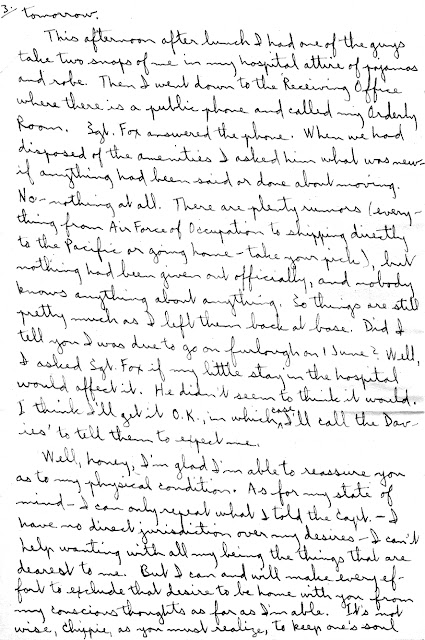 3.
tomorrow.
This afternoon after lunch I had one of the guys
take two snaps of me in my hospital attire of pajamas
and robe. Then I went down to the Receiving Office
where there is a public phone and called my Orderly
Room. Sgt. Fox answered the phone. When we had
disposed of the amenities I asked him what was new-
if anything had been said or done about moving.
No-nothing at all. There are plenty rumors (every-
thing from Air Force of Occupation to shipping directly
to the Pacific or going home-take your pick), but
nothing had been given out officially, and nobody
knows anything about anything. So things are still
pretty much as I left them back at base. Did I
tell you I was due to go on furlough on 1 June? Well,
I asked Sgt. Fox if my little stay in the hospital
would affect it. He didn't seem to think it would.
I think I'll get it O.K., in which case I'll call the Dav-
ies' to tell them to expect me.
Well, honey, I'm glad I'm able to reassure you
as to my physical condition. As for my state of
mind-I can only repeat what I told the Capt.-I
have no direct jurisdiction over my desires-I can't
help wanting with all my being the things that are
dearest to me. But I can and will make every ef-
fort to exclude that desire to be home with you from
my conscious thoughts as far as I'm able. It's not
wise, Chippie, as you must realize, to keep one's soul